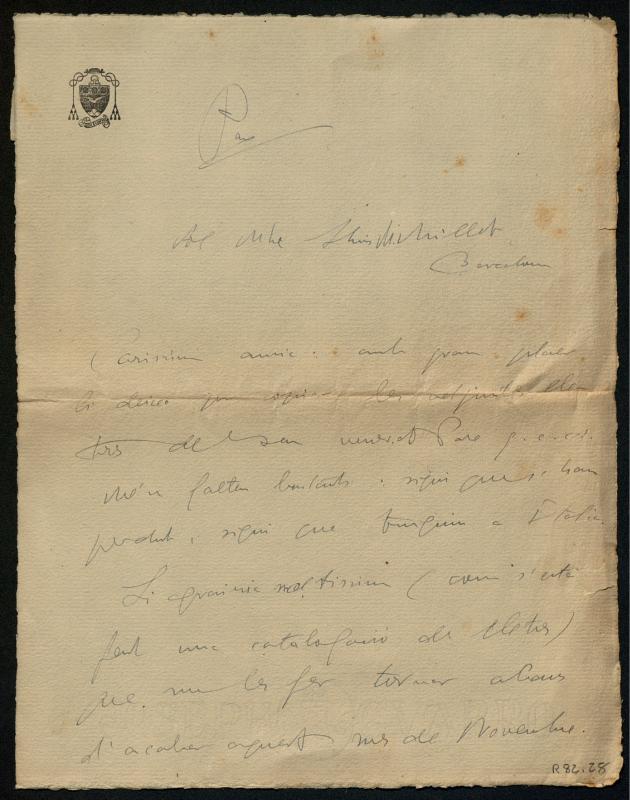 Pax
Al Mtre Lluis Mª Millet
Barcelona
Caríssim amic: amb gran plaer
li deixo per copiar les adjuntes lle-
tres del seu venerat Pare q. e. c. s.
Me'n falten bastants: sigui que s'han
perdut, sigui que tinguin a Italia.
Li agrairia moltissim (com s'está
fent una catalogació de lletres)
que me les fes tornar abans
d'acabar aquest mes de Novembre.
R82.28